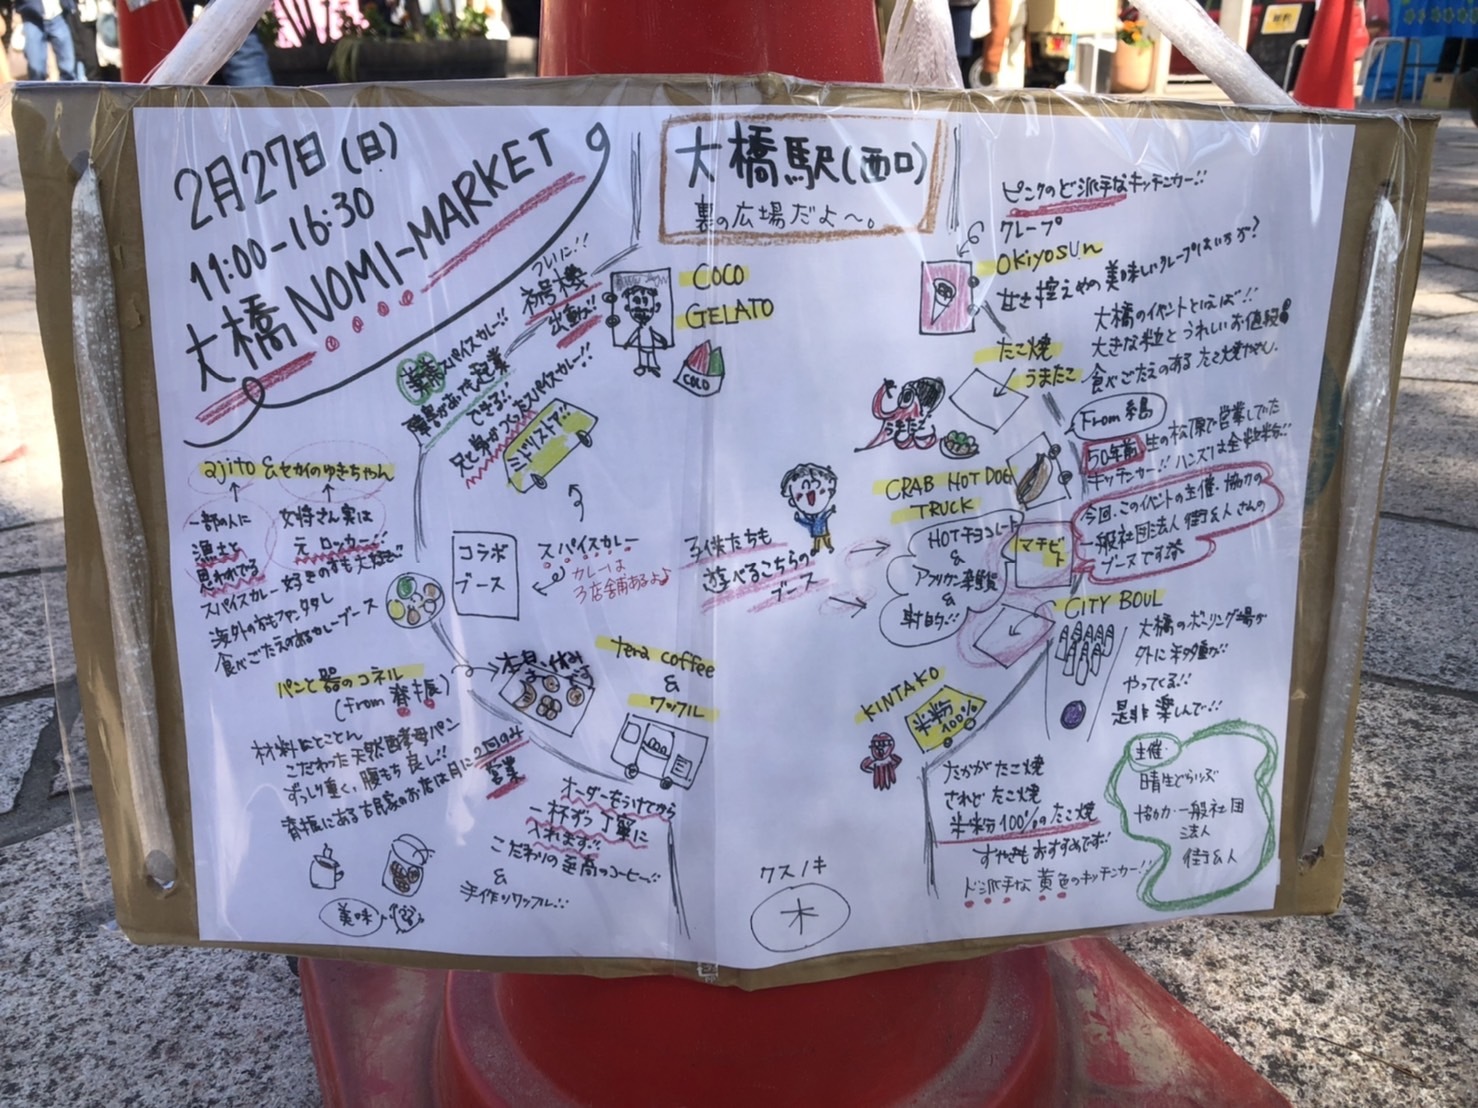 2月27日(日)
11:00-16:30
大橋NOMI-MARKET
大橋駅(西口)
裏の広場だよ〜。
ついに!!
初号機
出動!!
COCO
GELATO
COCO
薬膳スパイスカレー!!
スパイスカレー!!
ミドリストア
ajito & セカイのゆきちゃん
一部の人に
漁土と
思われてる
女将さん実は
元 ロッカー!!
スパイスカレー好きのすも大好き
海外のおもファンタタし
食べごたえのあるカレーブース
コラボ
ブース
スパイスカレー
カレーは
3店舗あるよ♪
パンと器のコネル
(from 脊振)
材料にとことん
こだわった天然酵母パン
ずっしり重く、腹もち良し!!
脊振にある古民家のお店は月に2回のみ
営業
美味
tera coffee
&
ワッフル
オーダーをうけてから
一杯ずつ丁寧に
入れます!!
こだわりの至高のコーヒー!!
&
手作りワッフル!!
ピンクのど派手なキッチンカー!!
クレープ
Okiyosun
甘さ控えめの美味しいクレープはいかが?
たこ焼
うまたこ
うまたこ
大橋のイベントといえば!!
大きな粒とうれしいお値段!
食べごたえのあるたこ焼やさん。
From 糸島
CRAB HOT DOG
TRUCK
50年前 生の松原で営業していた
キッチンカー!! バンズは全粒粉!!
子供たちも
遊べるこちらの
ブース
HOTチョコレート
&
アフリカン雑貨
&
射的!!
マチビト
今回、このイベントの主催・協力の
一般社団法人 街&人さんの
ブースです
CITY BOUL
大橋のボーリング場が
外に
やってくる!!
是非楽しんで!!
KINTAKO
米粉
100%
たかが たこ焼
されど たこ焼
米粉100%のたこ焼
すやきもおすすめです!!
ド派手な黄色のキッチンカー!!
クスノキ
木
主催
協力 一般社団
法人
街&人